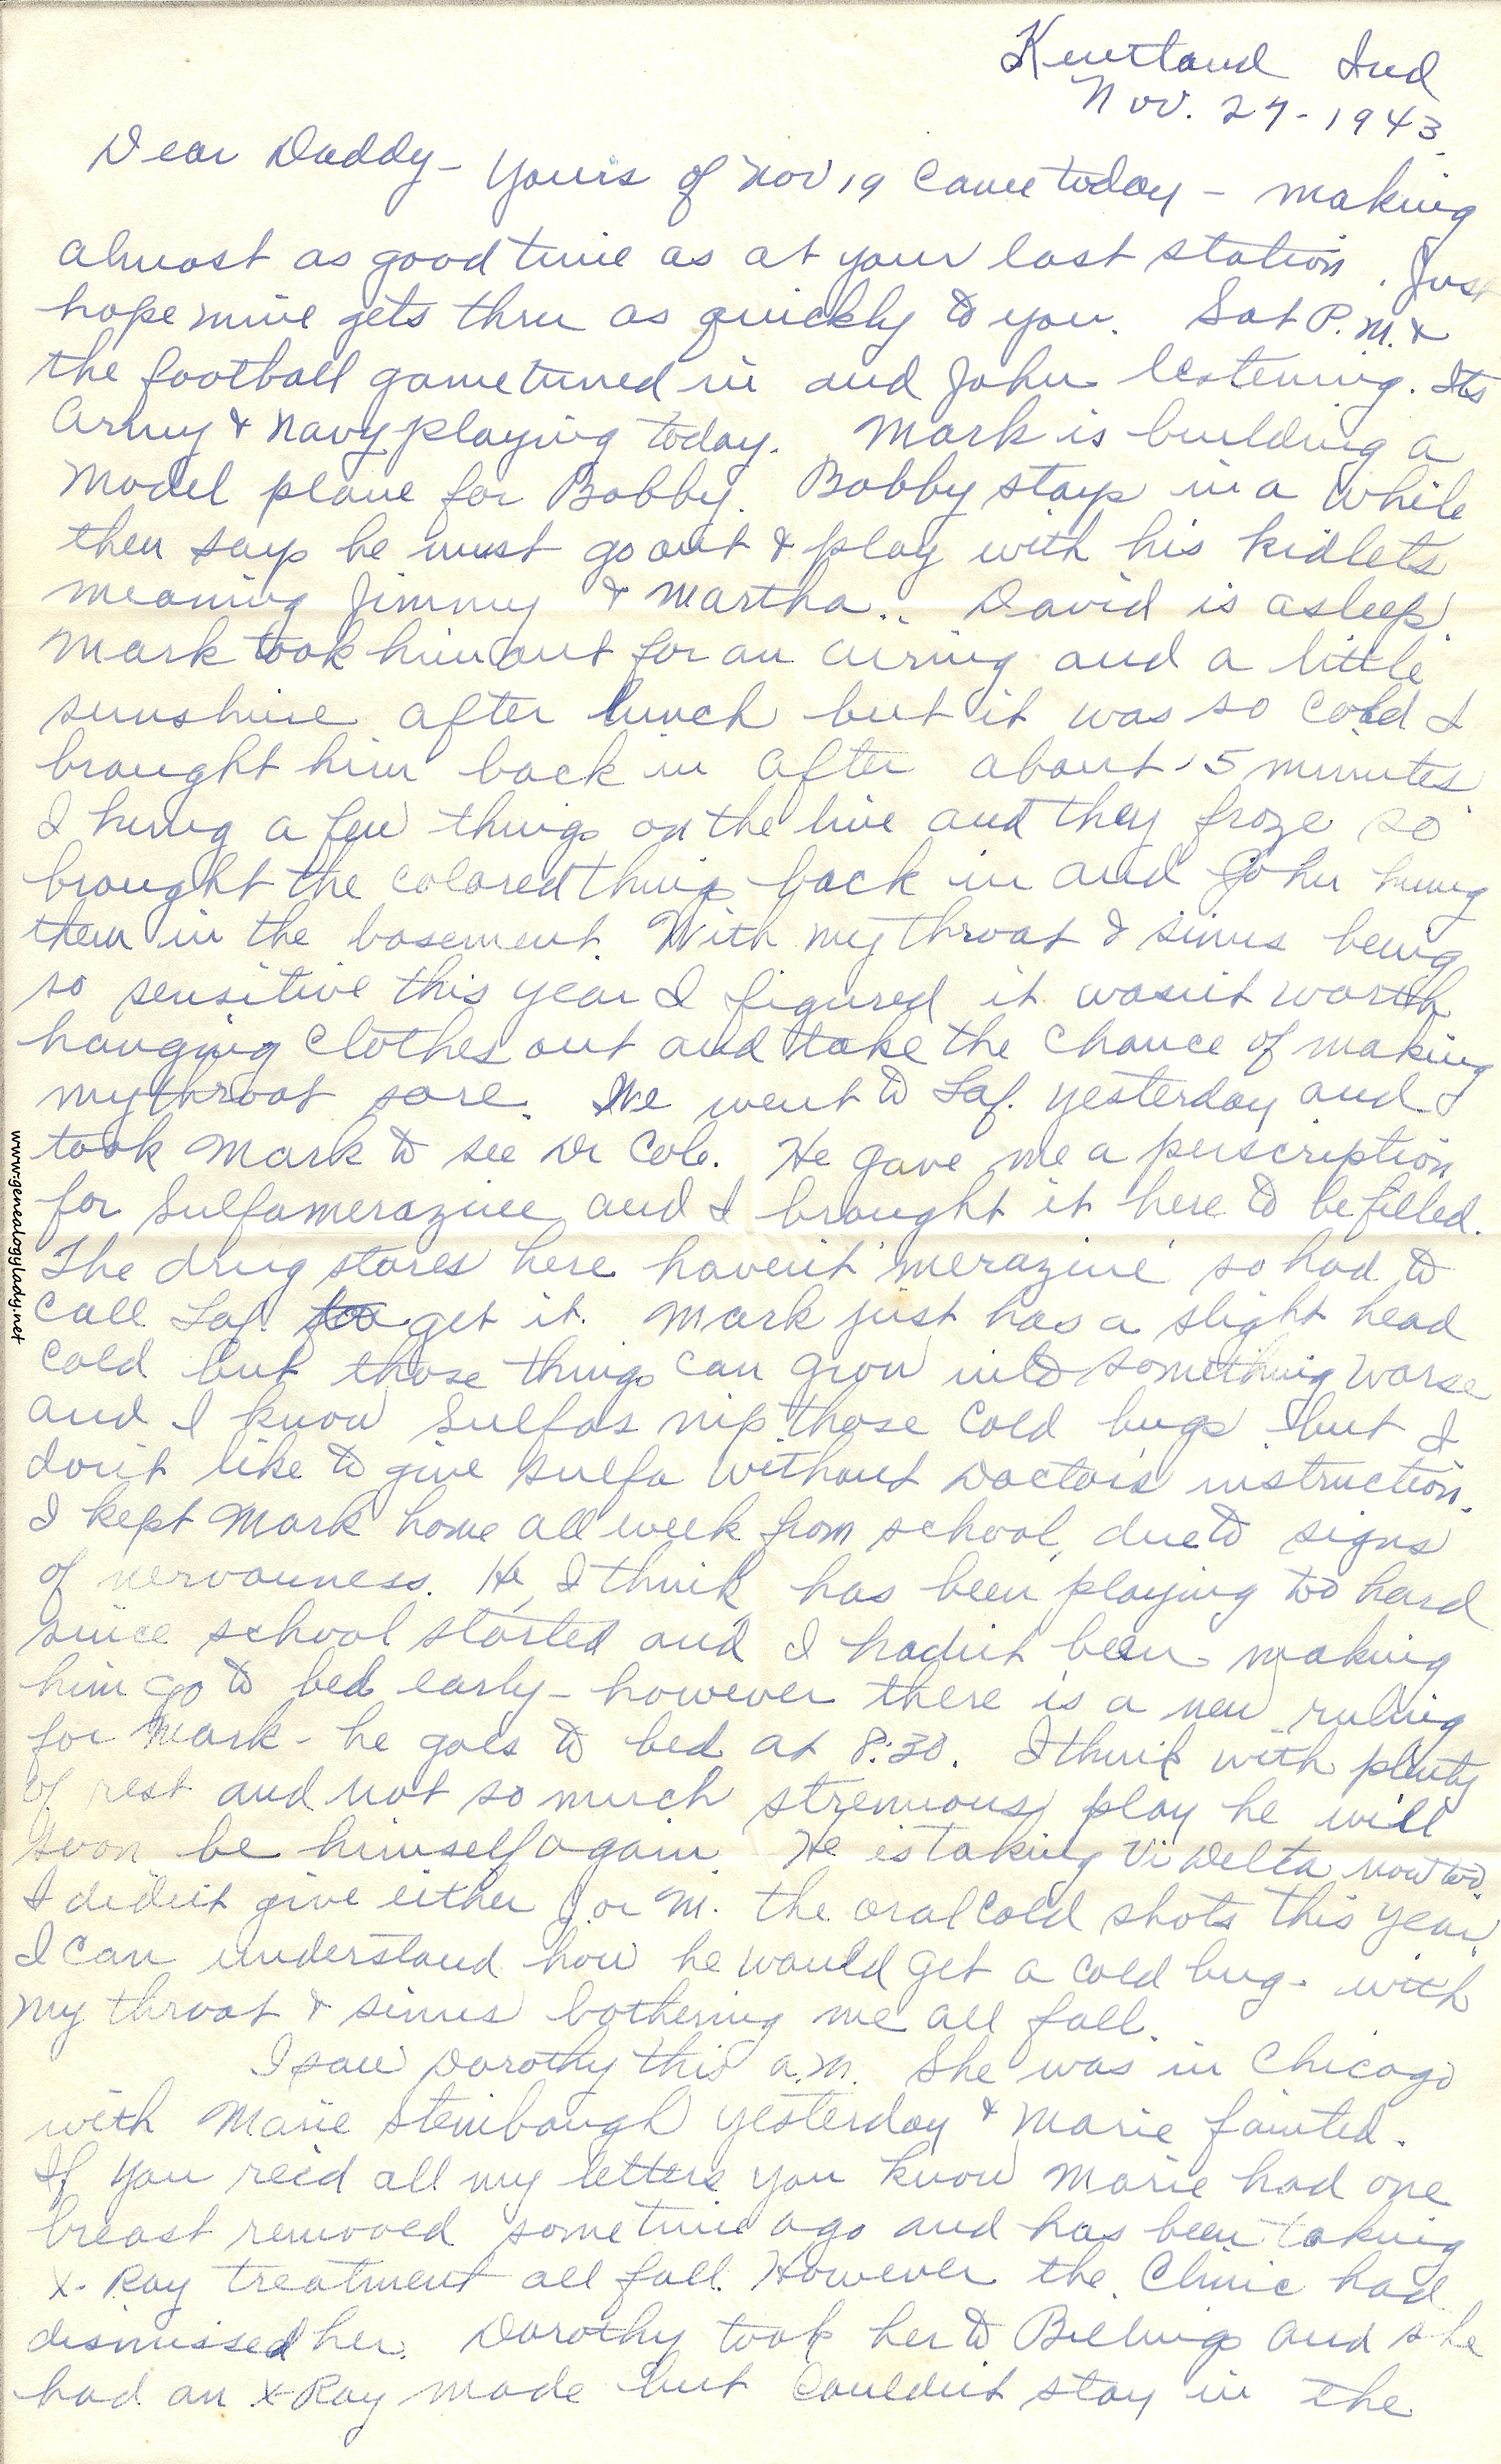 Kentland Ind
Nov. 27-1943.
Dear Daddy- Yours of Nov 19 came today - making
almost as good time as at your last station. Just
hope mine gets thru as quickly to you. Sat P.M. &
the football game tuned in and John listening. Its
Army & Navy playing today. Mark is building a
model plane for Bobby. Bobby stays in a while
then says he must go out & play with his kidlets
meaning Jimmy & Martha.. David is asleep.
Mark took him out for an airing and a little
sunshine after lunch but it was so cold I
brought him back in after about 15 minutes.
I hung a few things on the line and they froze so
brought the colored things back in and John hung
them in the basement. With my throat & sinus being
so sensitive this year I figured it wasn't worth
hanging clothes out and take the chance of making
my throat sore. We went to Laf. yesterday and I
took Mark to see Dr Cole. He gave me a perscription
for Sulfamerazine and I brought it here to be filled.
The drug stores here haven't 'merazine' so had to
call Laf. to get it. Mark just has a slight head
cold but those things can grow into something worse
and I know Sulfas nip those cold bugs but I
don't like to give sulfa without Doctors instruction.
I kept Mark home all week from school, due to signs
of nervouness. He, I think, has been playing too hard
since school started and I hadn't been making
him go to bed early - however there is a new ruling
for Mark - he goes to bed at 8:30. I think with plenty
of rest and not so much strenuous play he will
soon be himself again. He is taking Vi Delta now too.
I didn't give either J. or M. the oral cold shots this year.
I can understand how he would get a cold bug - with
my throat & sinus bothering me all fall.
I saw Dorothy this a.m. She was in Chicago
with Marie Steinbaugh yesterday & Marie fainted.
If you rec'd all my letters you know Marie had one
breast removed some time ago and has been taking
X-Ray treatment all fall. However the Clinic had
dismissed her. Dorothy took her to Billings and she
had an X-Ray made but couldn't stay in the
www.genealogylady.net